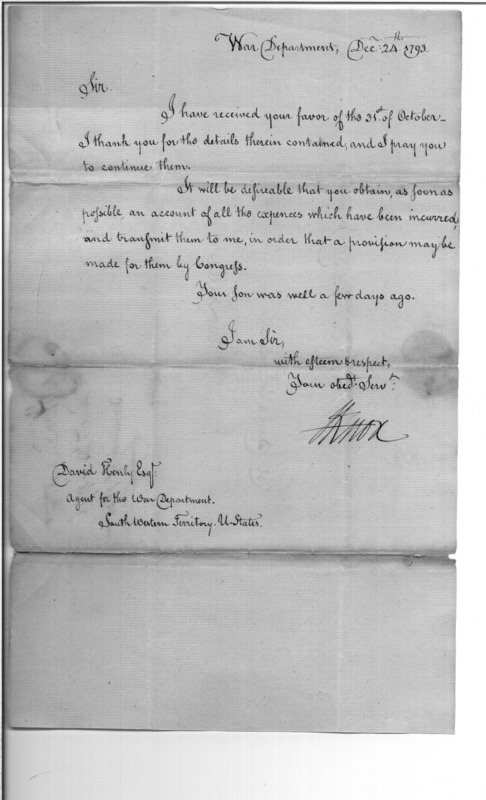 War Department, Decr. 24th 1793.
Sir.
I have received your favor of the 31st. of October-
I thank you for the details therein contained, and I pray you
to continue them.
It will be desireable that you obtain, as soon as
possible an account of all the expences which have been incurred,
and transmit them to me, in order that a provision may be
made for them by Congress.
Your son was well a few days ago.
I am Sir,
with esteem & respect,
Your obedt. Servt.
HKnox
David Henly Esqr.
Agent for the War Department.
South Western Territory. U. States.